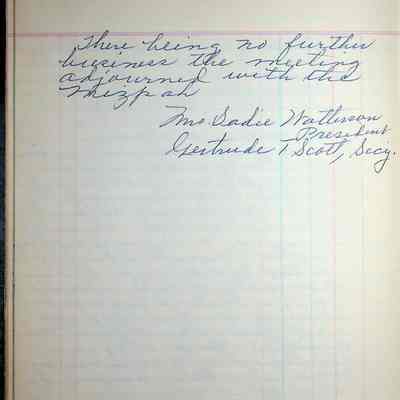 There being no further
business the meeting
adjourned with the
Mizpah
Mrs Sadie Watterson
President
Gertrude T Scott, Secy.